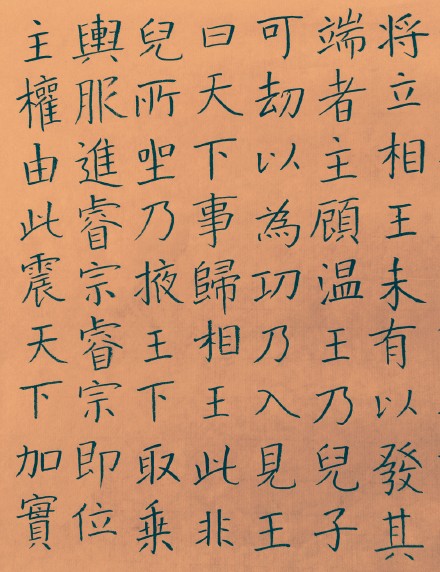 将立相王未有以發其
端者主顧温王乃兒子
可劫以為功乃入見王
曰天下事歸相王此非
兒所坐乃掖王下取乗
輿服進睿宗睿宗即位
主權由此震天下加實